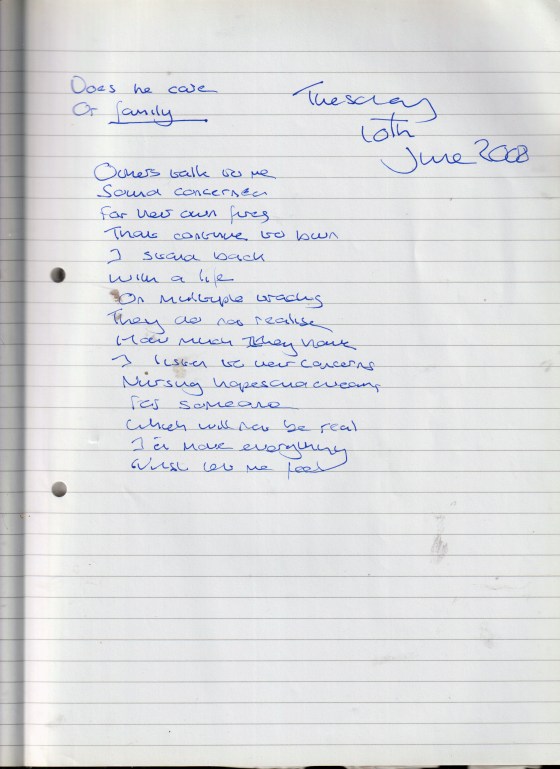 Does he care
Or family
Tuesday
10th
June 2008
Others talk to me
Sound concerned
For her own fires
That continue to burn
I stand back
With a life
On multiple
They do not realise
How much they have
I listen to her concerns
Nursing hopes and dreams
For someone
Which will not be real
I'd have everything
Just let me feel